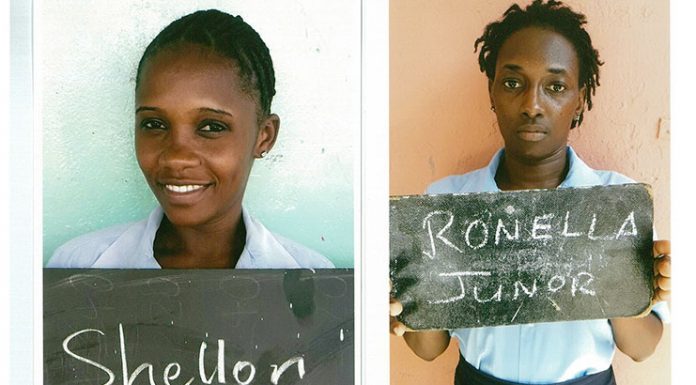 Shellon
RONELLA
JUNOR